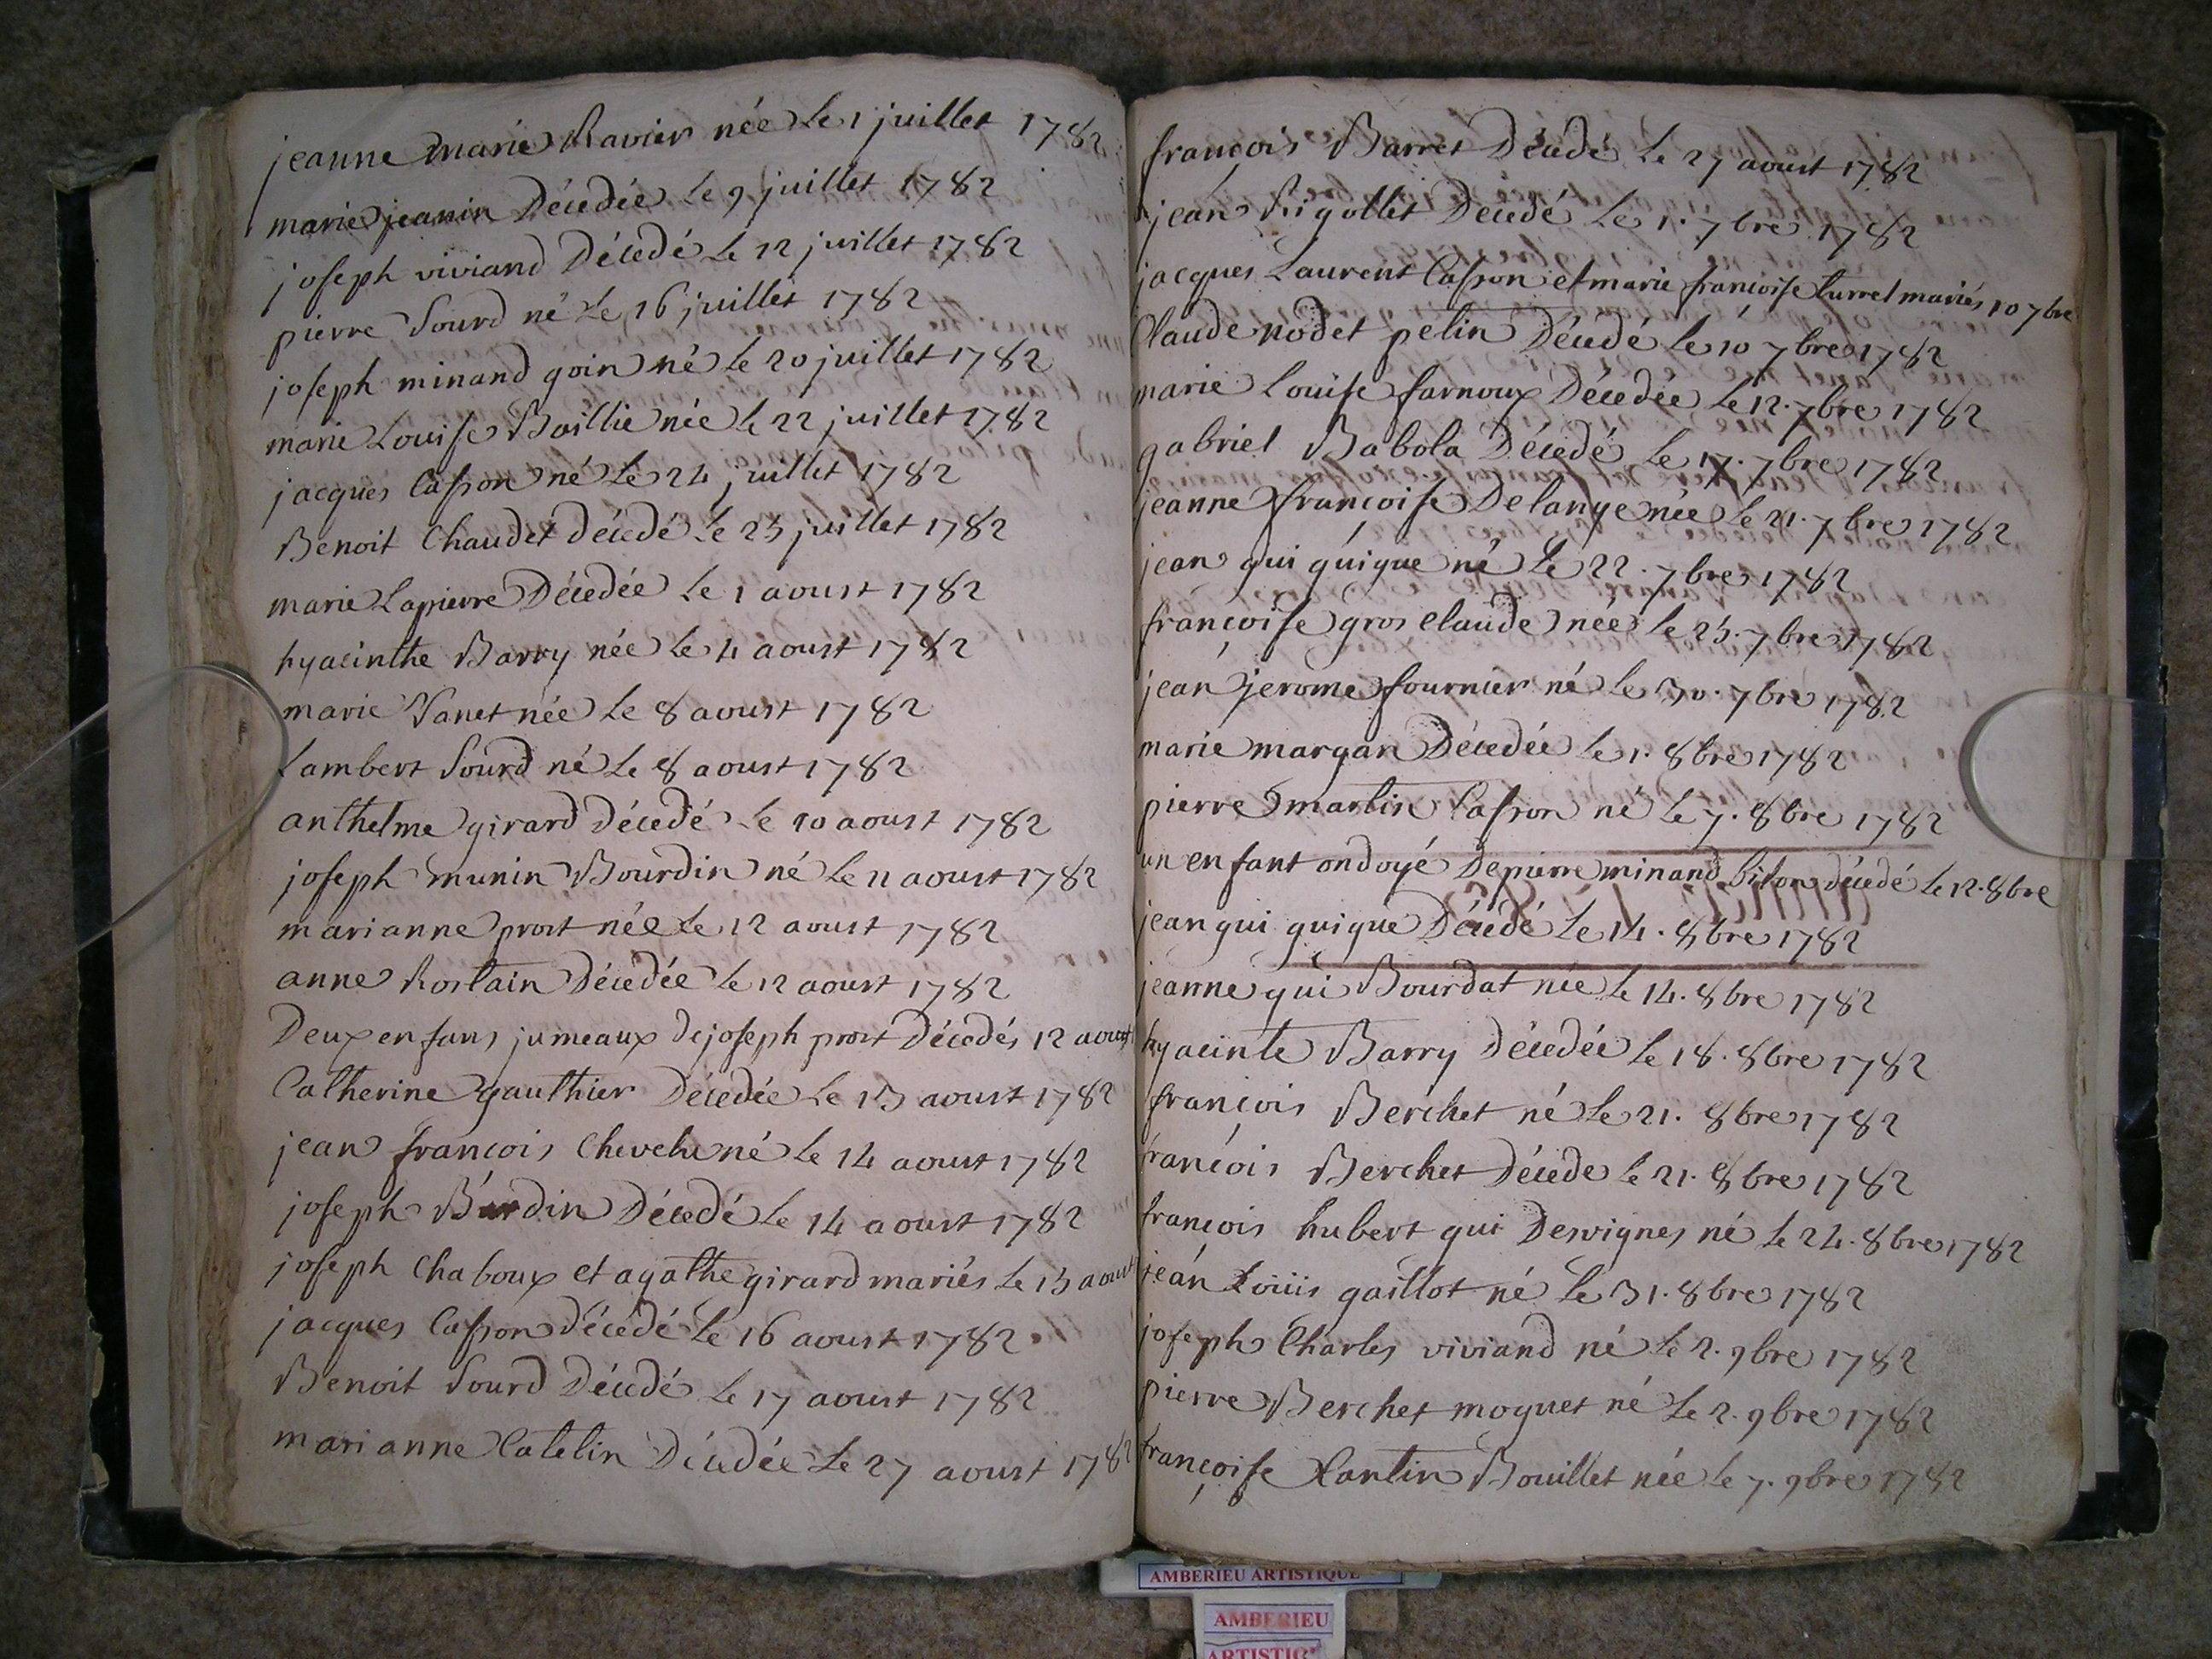 jeanne marie Ravier née Le 1 juillet 1782
marie jeanin Décedée Le 9 juillet 1782
joseph viviand Décedé Le 12 juillet 1782
pierre Sourd né Le 16 juillet 1782
joseph minand goin né Le 20 juillet 1782
marie Louise Baillie née Le 22 juillet 1782
jacques Casson né Le 24 juillet 1782
Benoit Chaudet Décedé Le 25 juillet 1782
marie Lapierre Décedée Le 1 aoust 1782
hyacinthe Barry née Le 4 aoust 1782
marie Vanet née Le 8 aoust 1782
Lambert Sourd né Le 8 aoust 1782
anthelme girard Décedé Le 10 aoust 1782
joseph munin Bourdin né Le 11 aoust 1782
marianne prost née Le 12 aoust 1782
anne Rostain Décedée Le 12 aoust 1782
Deux enfans jumeaux de joseph prost Décedés 12 aoust
Catherine gauthier Décedée Le 13 aoust 1782
jean françois Chevelu né Le 14 aoust 1782
joseph Bardin Décedé Le 14 aoust 1782
joseph Chaboux et agathe girard mariés Le 15 aoust
jacques Casson décédé Le 16 aoust 1782
Benoit Sourd Décedé Le 17 aoust 1782
marianne Catelin Décedée Le 27 aoust 1782
françois Barret Décedé Le 27 aoust 1782
jean Rigollet Decedé Le 1. 7bre 1782
jacques Laurent Casson et marie françoise turrel mariés 10 7bre
Claude nodet pelin Décedé Le 10 7bre 1782
marie Louise farnoux Décedée Le 12. 7bre 1782
gabriel Babola Décedé Le 17. 7bre 1782
jeanne françoise Delange née Le 21. 7bre 1782
jean gui guigue né Le 22. 7bre 1782
françoise gros claude née Le 25. 7bre 1782
jean jerome fournier né Le 30. 7bre 1782
marie margan Décedée Le 1. 8bre 1782
pierre martin Casson né Le 7. 8bre 1782
un enfant ondoyé De pierre minand biton décedé Le 12. 8bre
jean gui guigue Décedé Le 14. 8bre 1782
jeanne gui Bourdat née Le 14. 8bre 1782
hyacinte Barry Décedée Le 18. 8bre 1782
françois Berchet né Le 21. 8bre 1782
françois Berchet Décede Le 21. 8bre 1782
françois hubert gui Desvignes né Le 24. 8bre 1782
jean Louis gaillot né Le 31. 8bre 1782
joseph Charles viviand né Le 2. 9bre 1782
pierre Berchet moguet né Le 2. 9bre 1782
françoise Tantin Bouillet née Le 7. 9bre 1782
AMBERIEU ARTISTIQUE
AMBERIEU
ARTISTIQUE